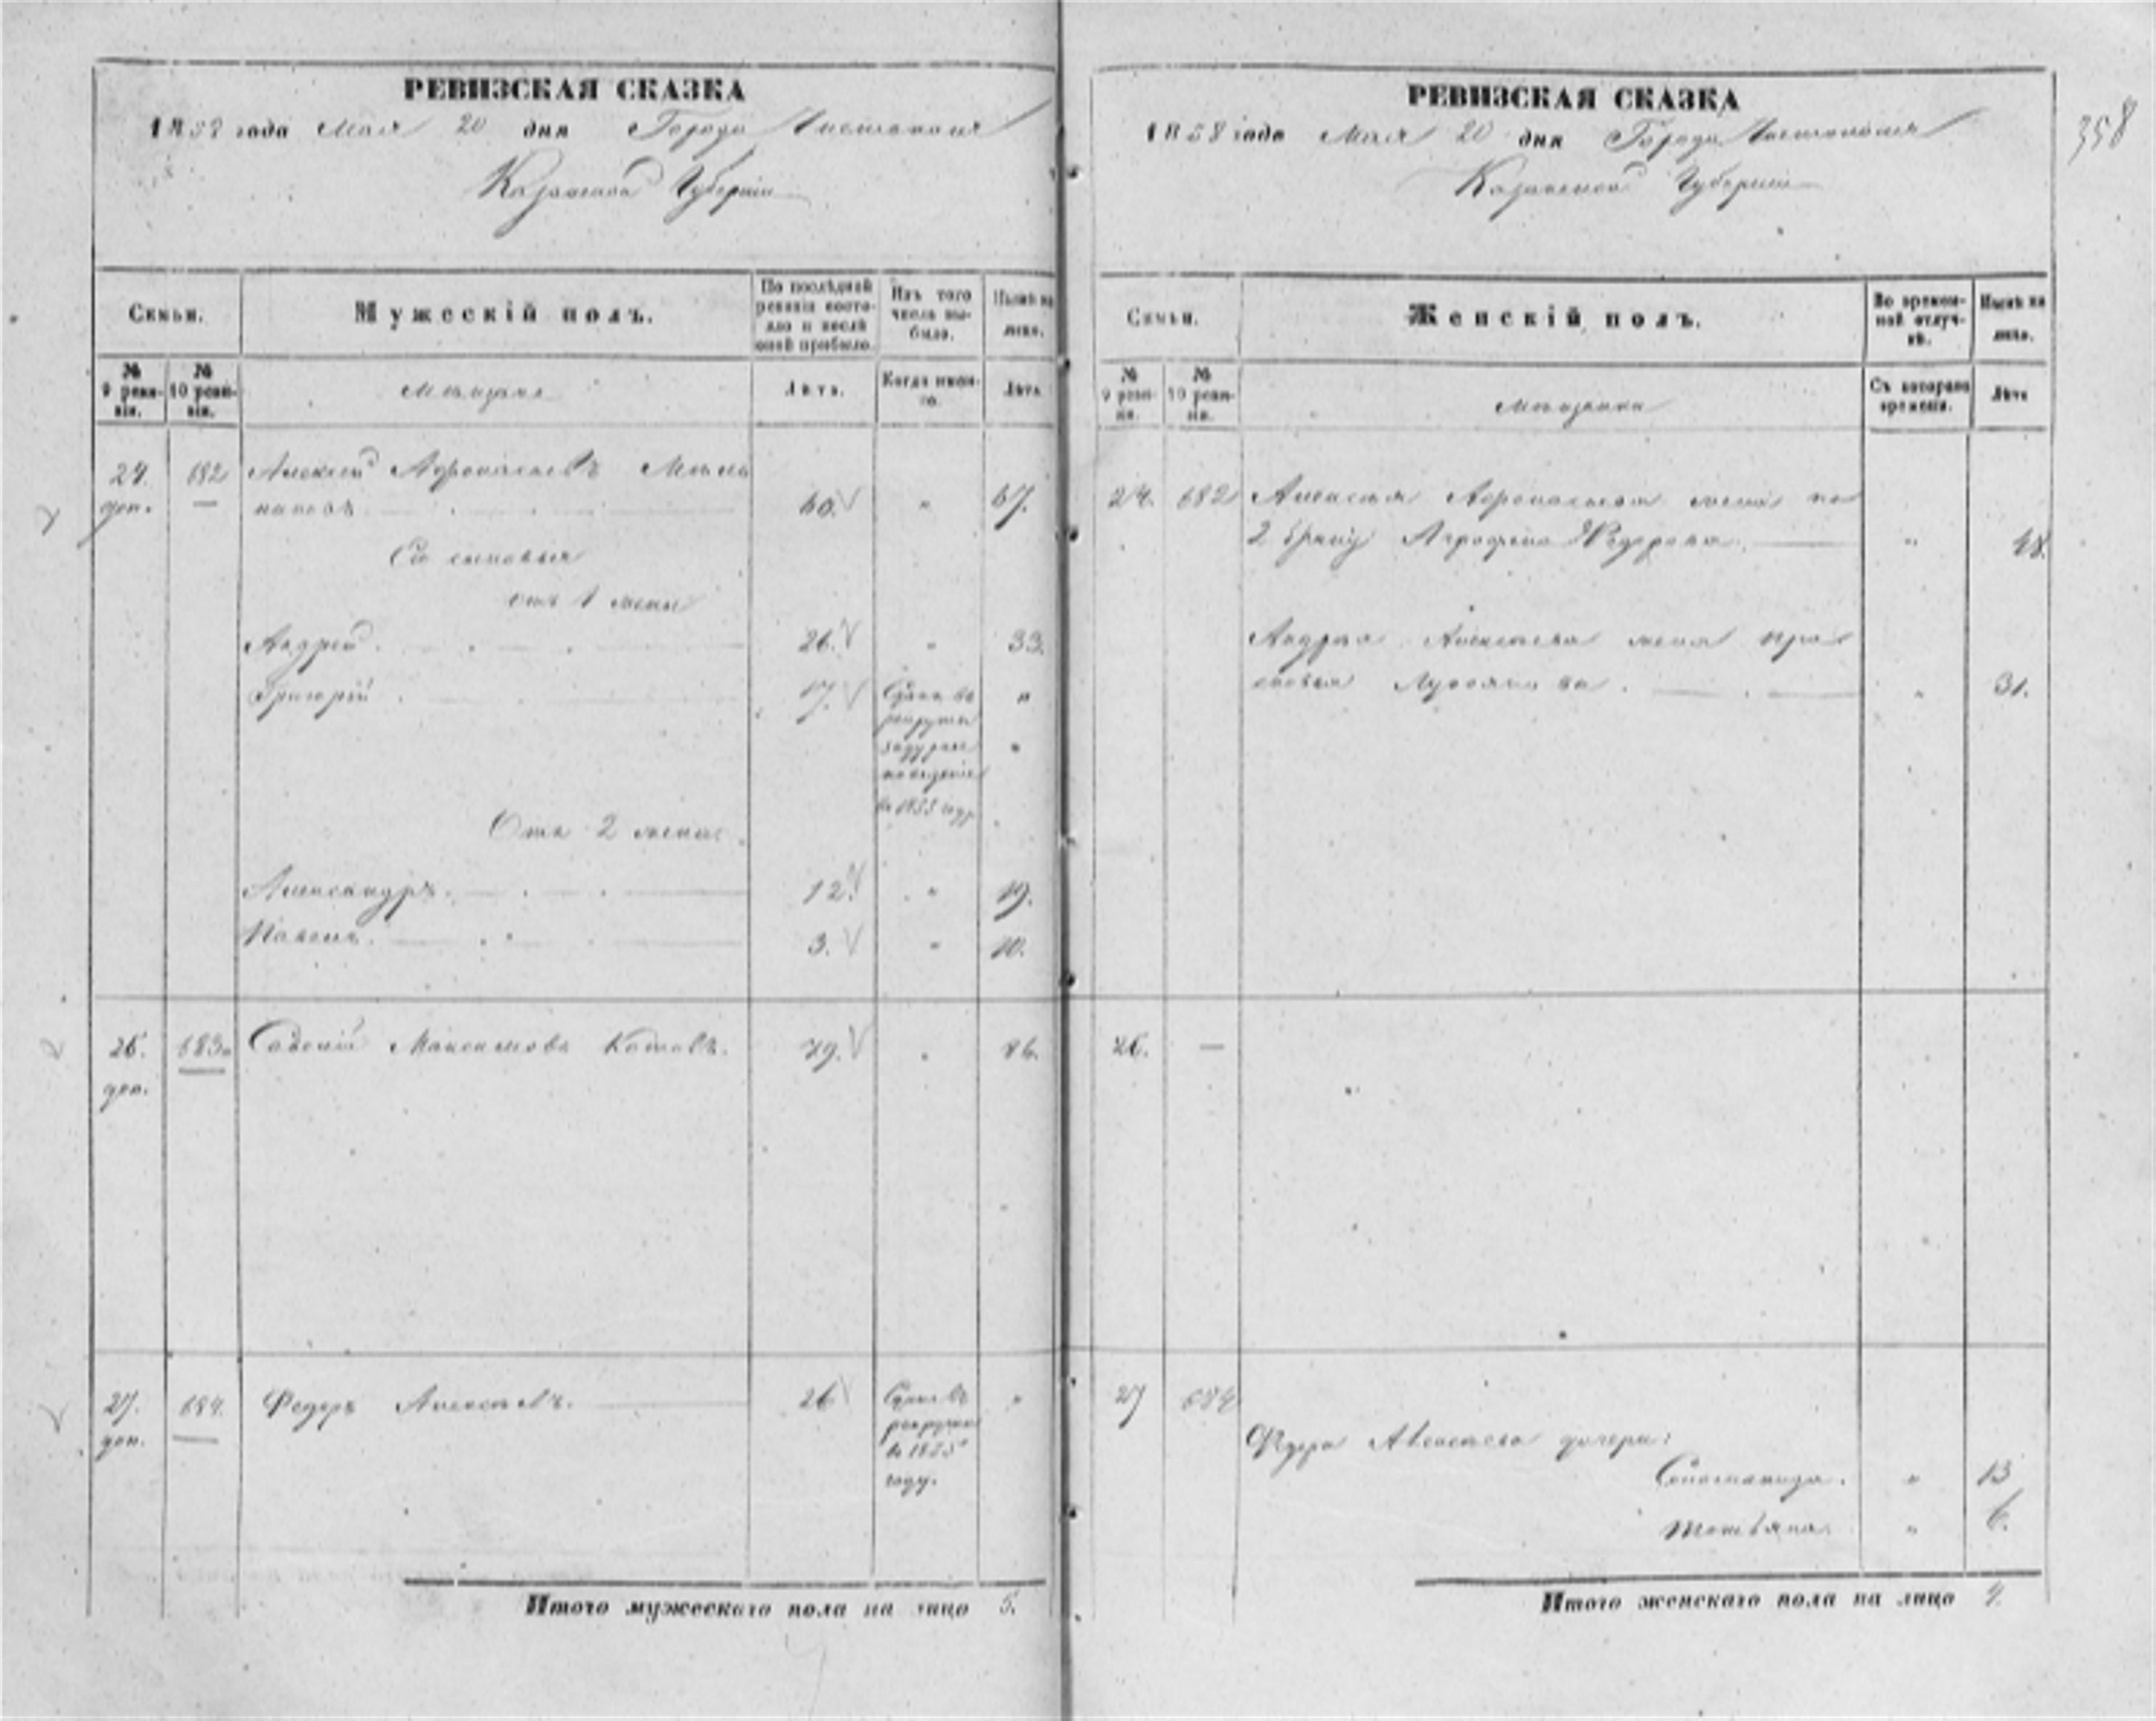 РЕВИЗСКАЯ СКАЗКА
1858 года Мая 20 дня Города Чистополя
Казанской Губернии
Семьи.
Мужескій полъ.
По послѣдней ревизіи состояло и послѣ оной прибыло.
Изъ того числа выбыло.
Нынѣ на лицо.
№ 9 ревизіи.
№ 10 ревизіи.
Мѣщане
Лѣтъ.
Когда именно.
Лѣта
24. 682 Алексей Афонасьевъ
доп. 60. " 67.
Его сыновья
отъ 1 жены
Андрей. 26. " 33.
Григорій. 17. Сданъ въ "
рекруты
"
въ 1855 году
Отъ 2 жены.
Александръ. 12. " 19.
Павелъ. 3. " 10.
26. 683. Савелій Максимовъ Котовъ. 79. " 86.
доп.
27. 684. Федоръ Алексѣевъ. 26 Сданъ въ "
доп. рекруты
въ 1855
году.
Итого мужескаго пола на лицо 5.
РЕВИЗСКАЯ СКАЗКА
358
1858 года Мая 20 дня Города Чистополя
Казанской Губернии
Семьи.
Женскій полъ.
Во временной отлучкѣ.
Нынѣ на лицо.
№ 9 ревизіи.
№ 10 ревизіи.
Мѣщанки
Съ котораго времени.
Лѣта
24. 682 Алексея Афонасьева жена по
2 браку Аграфена Федорова. " 48.
Андрея Алексеева жена Пра
сковья " 31.
26. —
27 684
Федора Алексеева дочери:
" 13
Татьяна. " 6.
Итого женскаго пола на лицо 4.